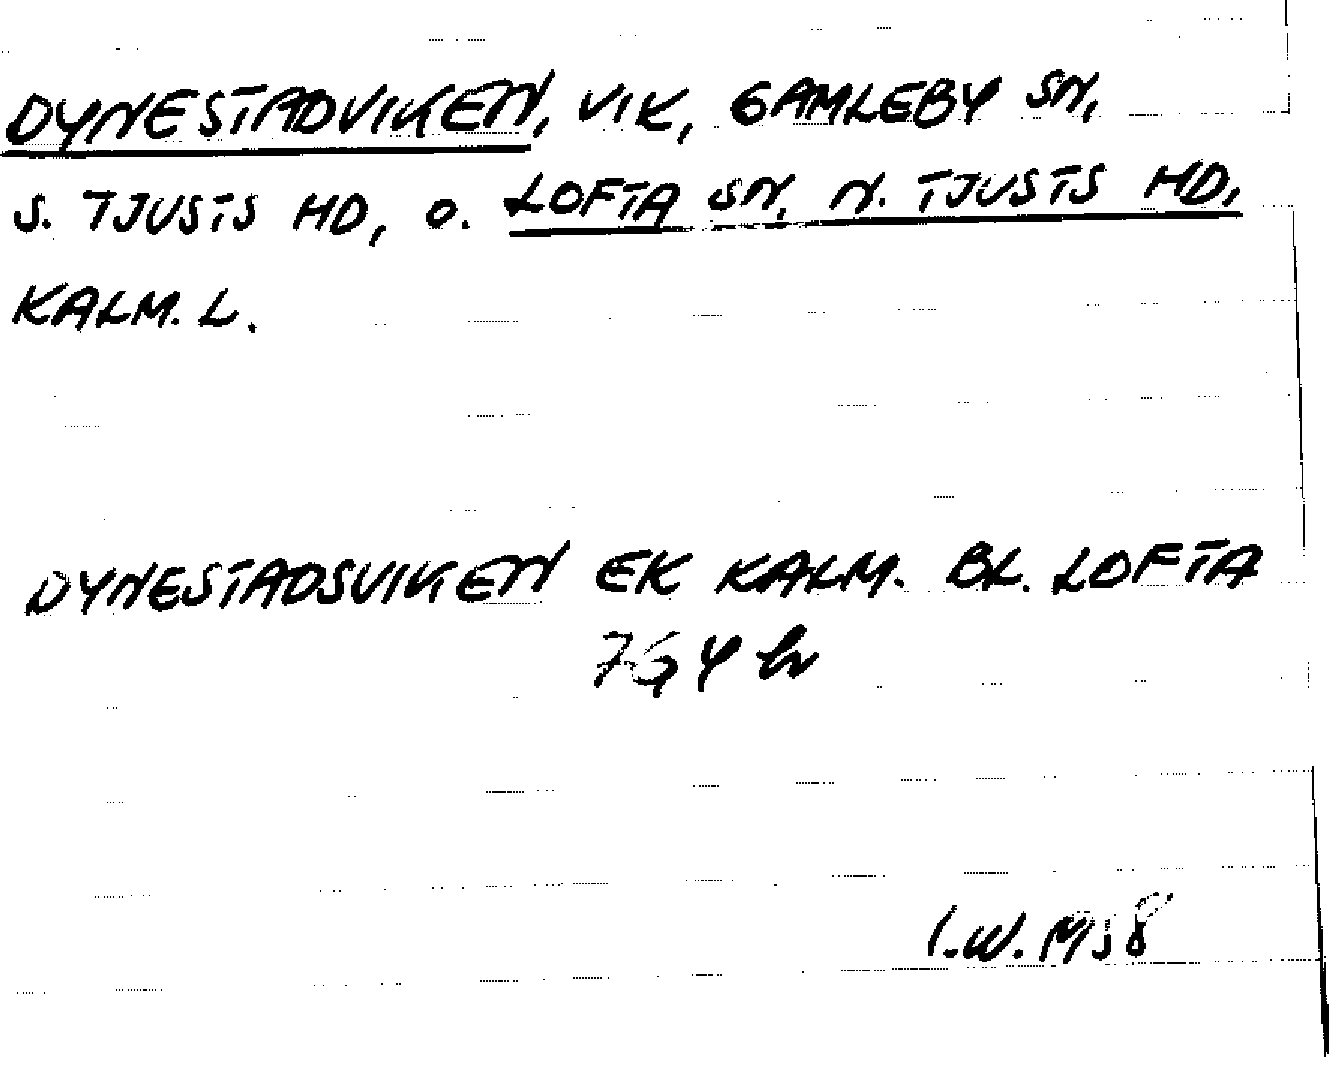 DYNESTADVIKEN, VIK, GAMLEBY SN,
S. TJUSTS HD, O. LOFTA SN, N. TJUSTS HD,
KALM. L.
DYNESTADSVIKEN EK KALM. BL. LOFTA
I.W. 1958